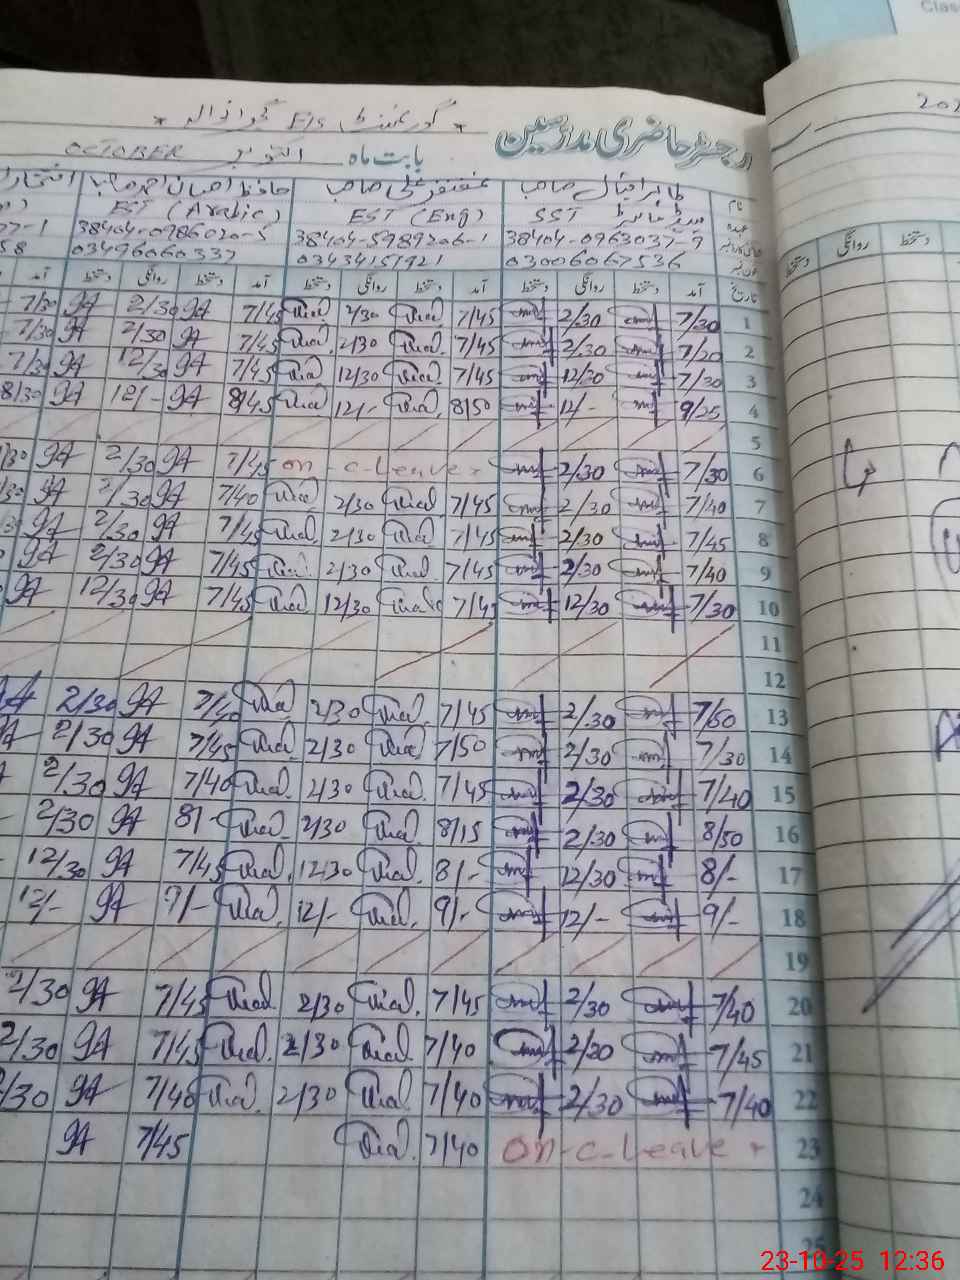 Clas
202
گورنمنٹ E/S
رجسٹر حاضری مدرسین
بابت ماہ اکتوبر OCTOBER
نام طاہر اقبال صاحب غضنفر علی صاحب حافظ احسان احمد صاحب
عہدہ SST EST (Eng) EST (Arabic)
38404-0963037-9 38404-5989206-1 38404-0986020-5
03006067536 03434151921 03496060337
تاریخ آمد دستخط روانگی دستخط آمد دستخط روانگی دستخط آمد دستخط روانگی دستخط آمد
روانگی دستخط
1 7/30 2/30 7/45 2/30 7/45 2/30 7/30
2 7/20 2/30 7/45 2/30 7/45 2/30 7/30
3 7/30 12/30 7/45 12/30 7/45 12/30 7/30
4 9/25 12/- 8/50 12/- 8/45 12/- 8/30
5
6 7/30 2/30 on - c-Leave 7/45 2/30
7 7/40 2/30 7/45 2/30 7/40 2/30
8 7/45 2/30 7/45 2/30 7/45 2/30
9 7/40 2/30 7/45 2/30 7/45 2/30
10 7/30 12/30 7/45 12/30 7/45 12/30
11
12
13 7/50 2/30 7/45 2/30 7/40 2/30
14 7/30 2/30 7/50 2/30 7/45 2/30
15 7/40 2/30 7/45 2/30 7/40 2/30
16 8/50 2/30 8/15 2/30 8/- 2/30
17 8/- 12/30 8/- 12/30 7/45 12/30
18 9/- 12/- 9/- 12/- 9/- 12/-
19
20 7/40 2/30 7/45 2/30 7/45 2/30
21 7/45 2/30 7/40 2/30 7/45 2/30
22 7/40 2/30 7/40 2/30 7/40 2/30
23 on-c-Leave 7/40 7/45
24
25
23-10-25 12:36